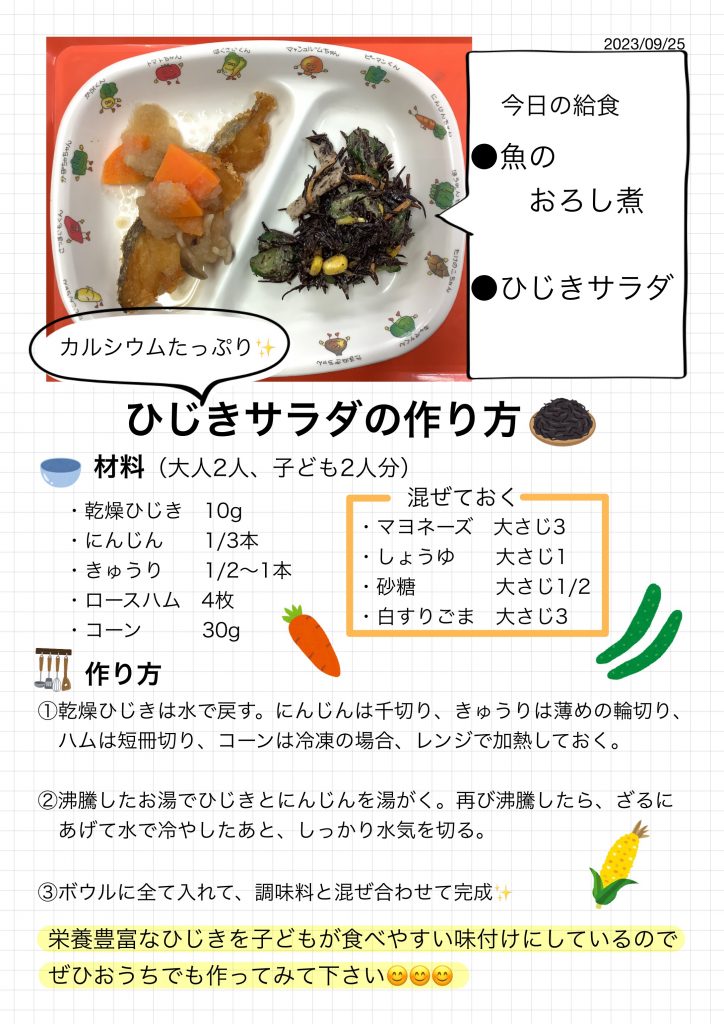 2023/09/25
今日の給食
●魚の
おろし煮
●ひじきサラダ
カルシウムたっぷり✨
ひじきサラダの作り方
材料（大人2人、子ども2人分）
・乾燥ひじき 10g
・にんじん 1/3本
・きゅうり 1/2〜1本
・ロースハム 4枚
・コーン 30g
混ぜておく
・マヨネーズ 大さじ3
・しょうゆ 大さじ1
・砂糖 大さじ1/2
・白すりごま 大さじ3
作り方
①乾燥ひじきは水で戻す。にんじんは千切り、きゅうりは薄めの輪切り、
ハムは短冊切り、コーンは冷凍の場合、レンジで加熱しておく。
②沸騰したお湯でひじきとにんじんを湯がく。再び沸騰したら、ざるに
あげて水で冷やしたあと、しっかり水気を切る。
③ボウルに全て入れて、調味料と混ぜ合わせて完成✨
栄養豊富なひじきを子どもが食べやすい味付けにしているので
ぜひおうちでも作ってみて下さい😊😊😊